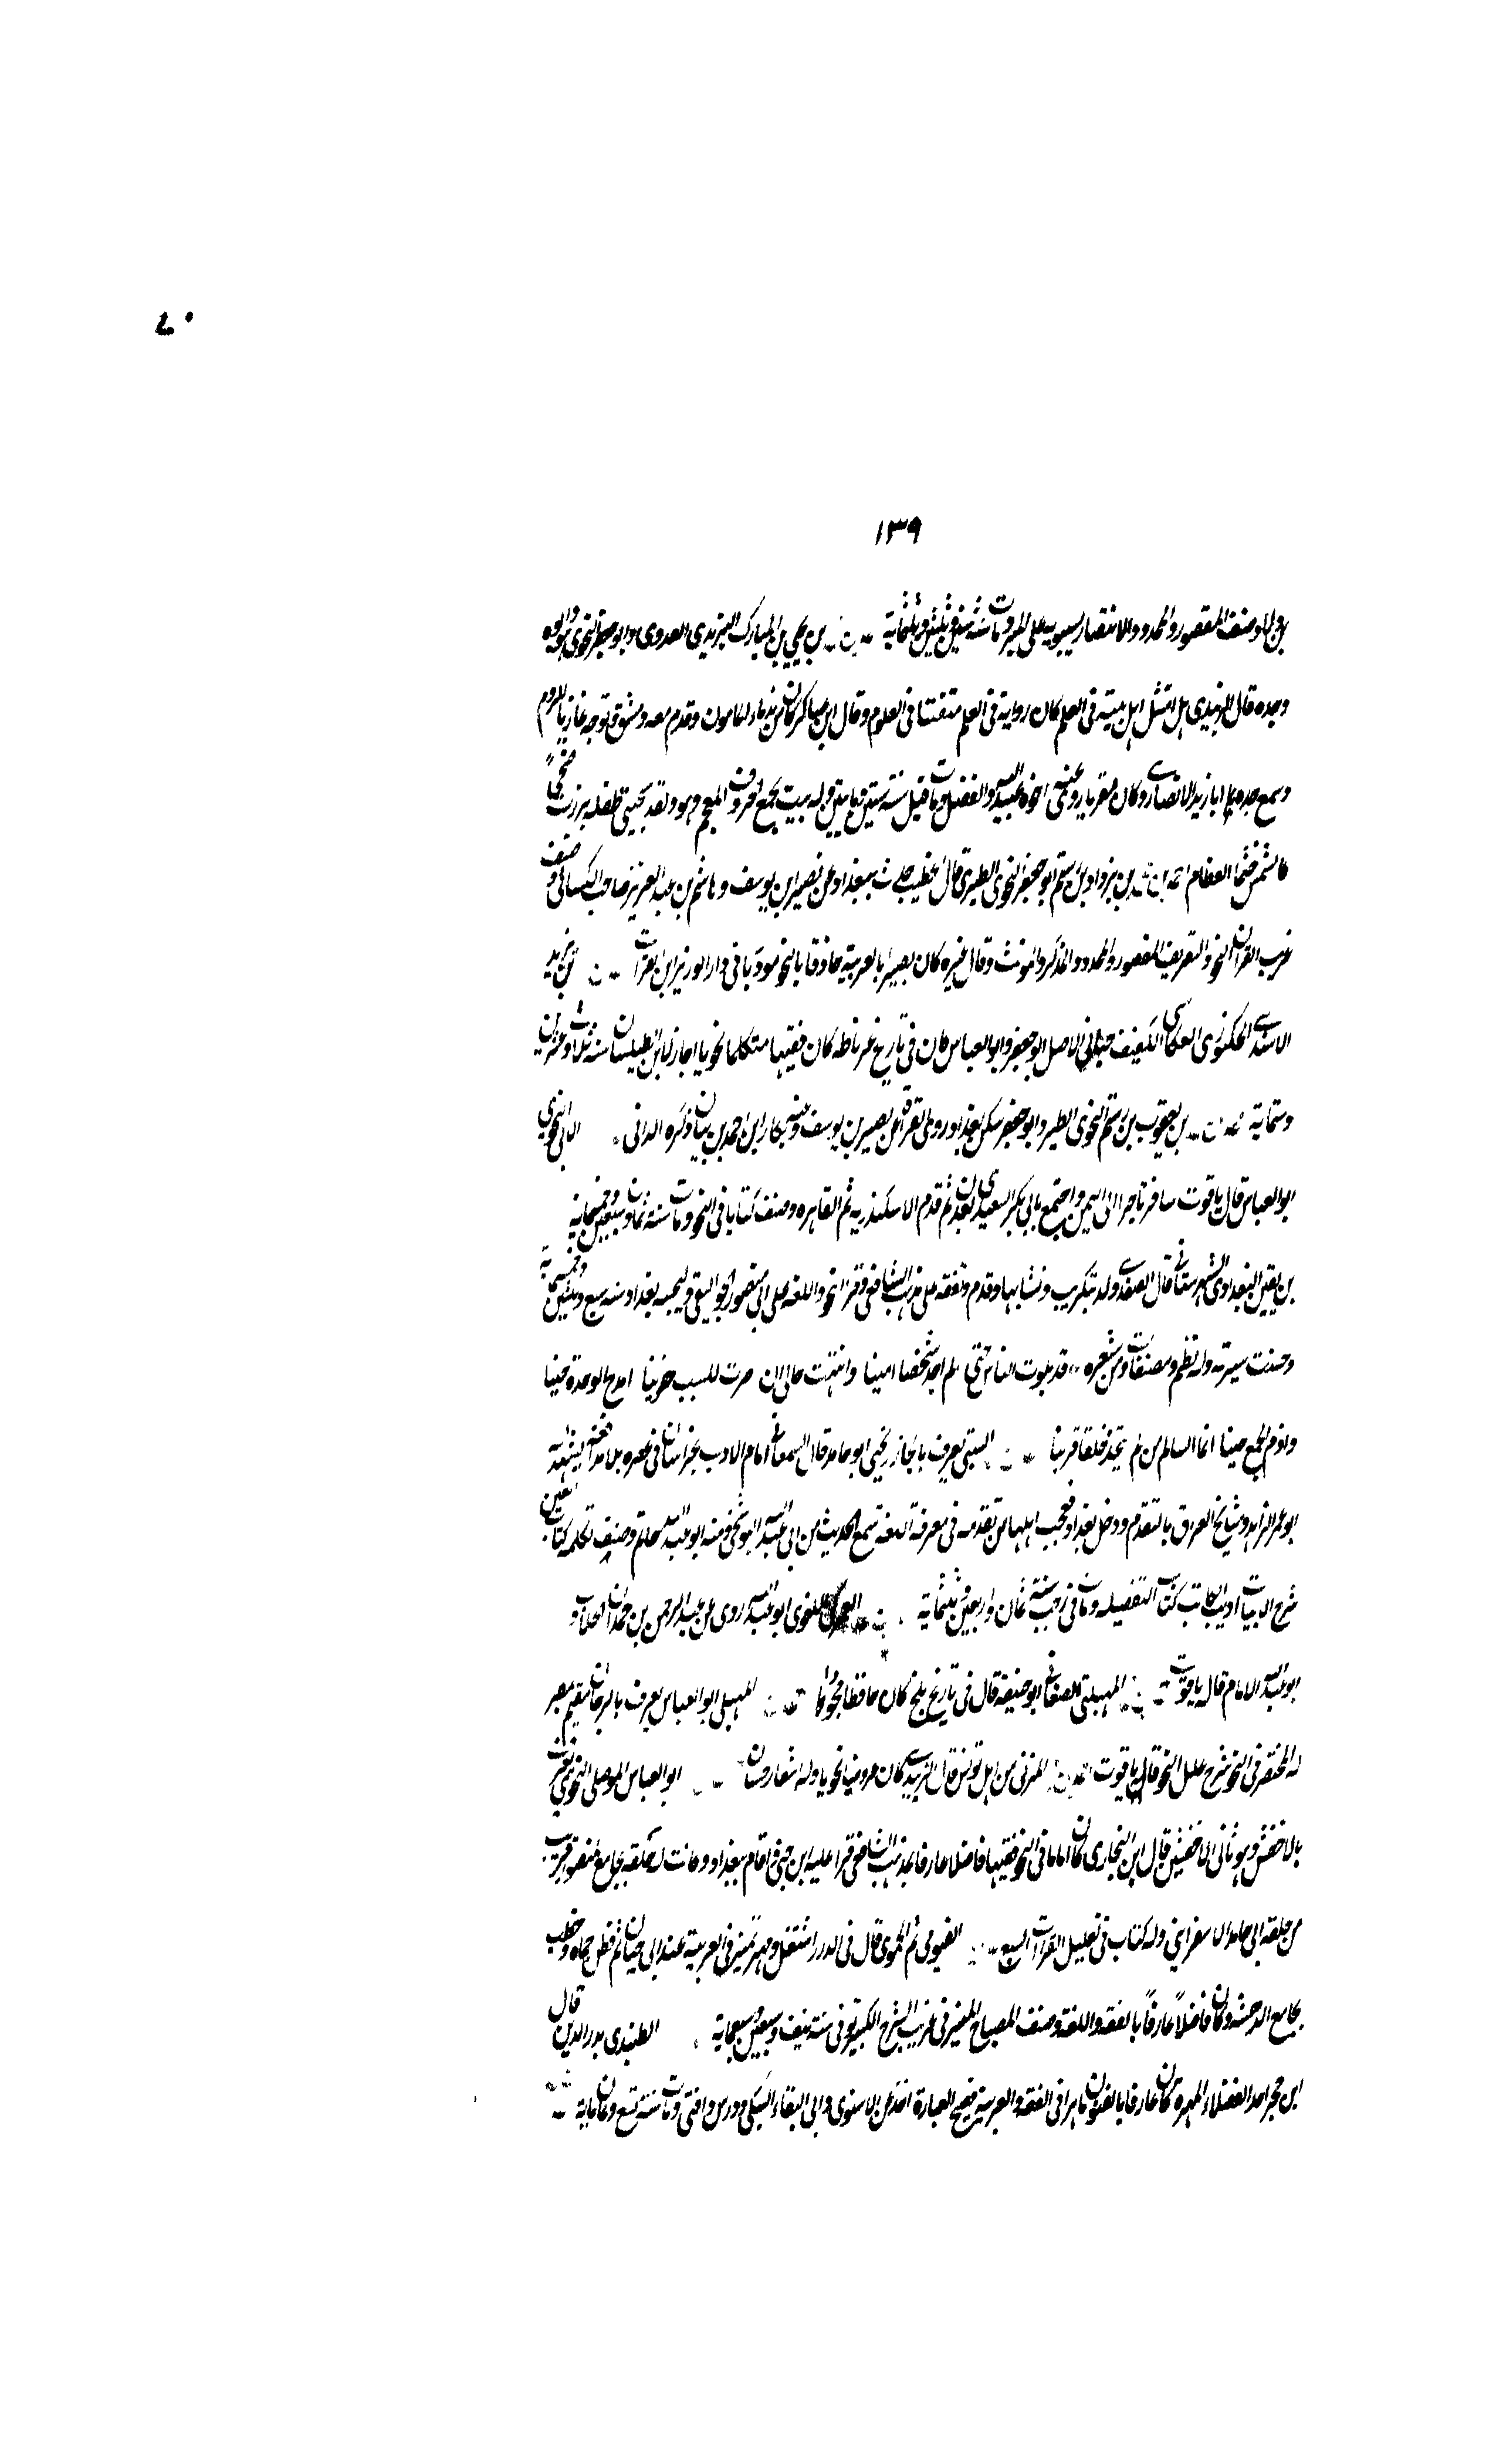 ٧٠
١٣٩
بن ولاد وصنف المقصور والممدود والانتصار لسيبويه على المبرد ومات سنة اثنين وثلثين وثلثماية بن محمد بن يحيى بن المبارك اليزيدى العدوى ابو جعفر النحوى هو وابوه
وجده قال الزبيدى هل امتثل اهل بيته فى العلم كان رواية فى العلم متفننا فى العلوم وقال ابن عساكر كان من ندماء المامون وقدم معه دمشق وتوجه غازيا للروم
وسمع جده وابا زيد الانصارى وكان مقريا روى عنه اخوه عبيد الله والفضل ومات قبيل سنة ستين وماتين وله بيت يجمع حروف المعجم وهو ولقد شجتنى طفلة برزت ضحى
كالشمس خثماء العظام بن يزداد بن رستم ابو جعفر النحوى الطبرى قال الخطيب حدث ببغداد عن نصير بن يوسف وهاشم بن عبد العزيز صاحب الكسائى وصنف
غريب القرآن النحو والتصريف المقصور والممدود المذكر والمونث وقال غيره كان بصيرا بالعربية حاذقا بالنحو مودبا فى دار الوزير ابن الفرات بن يزيد
الاسدى العكاشى الكفيف جيانى الاصل ابو جعفر وابو العباس كان فى تاريخ غرناطه كان فقيها متكلما نحويا اجاز لابن الطيلسان سنة ثلاث وعشرين
وستماية بن يعقوب بن رستم النحوى الطبرى ابو جعفر سكن بغداد وروى القراة عن نصير بن يوسف وعنه بكار ابن احمد بن بنان ذكره الدانى النحوى
ابو العباس قال ياقوت سافر تاجرا الى اليمن واجتمع بابى بكر السعيدى بعدن ثم قدم الاسكندرية ثم القاهره وصنف كتابا فى النحو ومات سنة ثمان وسبعين وخمسماية
البغدادى قال الصفدى ولد بتكريت ونشا بها وقدم وتفقه على مذهب الشافعى وقرا النحو واللغة على ابى منصور الجواليقى بغداد سنه سبع وثلثين وخمسماية
وحسنت سيرته وله نظم ومصنفات ومن شعره قد بلوت الناس حتى لم اجد شخصا امينا وانتهت حالى الى ان صرت للبيت خدينا امدح الوحدة حينا
واذم الجمع حينا انما السالم من لم يتخذ خلقا قرينا البستى يعرف بالخارزنجى ابو حامد قال السمعانى امام الادب بخراسان فى عصره بلا مدافعة شهد له
ابو عمر الزاهد ومشايخ العراق بالتقدم ودخل بغداد فعجب اهلها من تقدمه فى معرفة اللغة سمع الحديث من ابى عبد الله البوشنجى ومنه ابو عبد الله الحاكم وصنف تكملة كتاب العين
شرح ابيات ادب الكاتب كتاب التفصله ومات فى رجب سنة ثمان واربعين وثلثماية اللغوى ابو عبد الله روى عن عبد الرحمن بن حمدان الجلاب و
ابو عبد الله الامام قال ياقوت المهلبى الصغانى ابو حنيفة قال فى تاريخ بلخ كان حافظا نحويا المهلبى ابو العباس يعرف بالبرجانى مقيم بمصر
له المختصر فى النحو شرح علل النحو قاله ياقوت المزنى من اهل تونس قال الزبيدى كان عروضيا نحويا وله اشعار حسان ابو العباس الموصلى النحوى يعرف
بالاخفش وهو ثانى الاخفشين قال ابن النجار كان اماما فى النحو فقيها فاضلا عارفا بمذهب الشافعى قرا عليه ابن جنى واقام ببغداد وكانت له حلقة بجامع المنصور قريبة
من حلقة ابى حامد الاسفراينى وله كتاب فى تعليل القراات السبع الفيومى ثم الحموى قال فى الدرر اشتغل ومهر وتميز فى العربية عند ابى حيان ثم قطن حماه وخطب
بجامع الدهشة وكان فاضلاً عارفاً بالفقه واللغة وصنف المصباح المنير فى غريب الشرح الكبير توفى سنة نيف وسبعين وسبعماية الطنبدى بدر الدين قال
ابن حجر احد الفضلاء المهرة كان عارفا بالفنون ماهرا فى الفقه والعربية فصيح العبارة اخذ عن الاسنوى وابى البقاء السبكى ودرس وافتى ومات سنة تسع وثمانماية